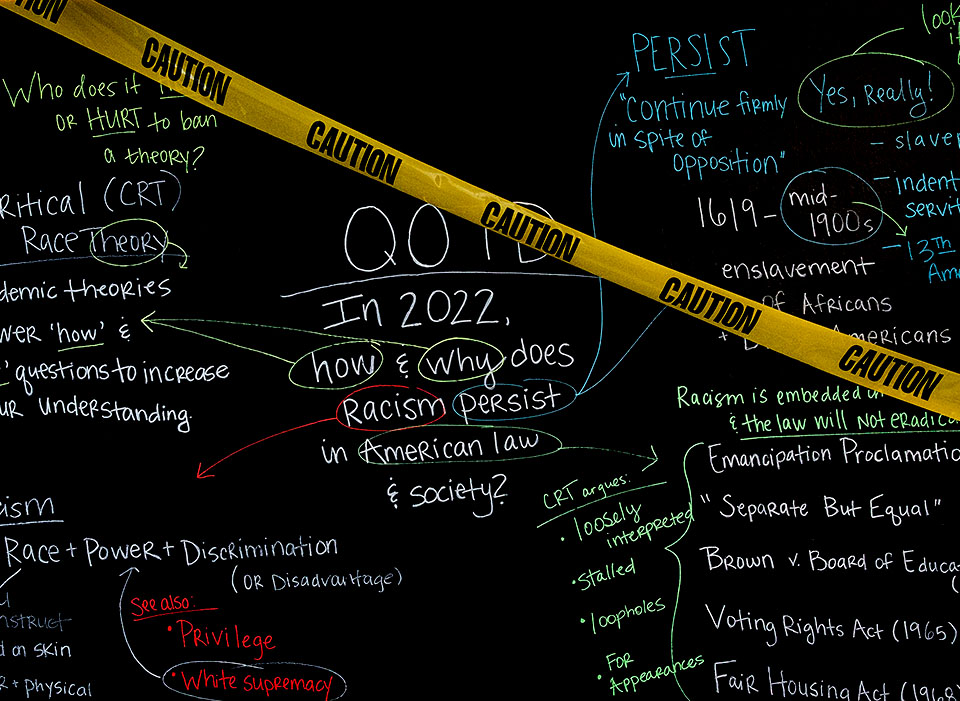 CAUTION
CAUTION
CAUTION
CAUTION
CAUTION
CAUTION
Who does it
OR HURT to ban
a theory?
ritical (CRT)
Race Theory
demic theories
wer 'how' &
questions to increase
ur understanding.
QOTD
In 2022,
how & why does
Racism persist
in American law
& society?
PERSIST
"Continue firmly
in spite of
opposition"
look
Yes, Really!
- slave
- indent
servit
- 13th
Am
1619 - mid-
1900s
enslavement
of Africans
mericans
Racism is embedded in
& the law will NOT eradica
Emancipation Proclamatio
"Separate But Equal"
Brown v. Board of Educa
Voting Rights Act (1965)
Fair Housing Act (1968)
CRT argues:
• loosely
interpreted
• stalled
• loopholes
• FOR
Appearances
ism
Race + Power + Discrimination
(OR Disadvantage)
See also:
• Privilege
• White supremacy
nstruct
d on skin
r + physical